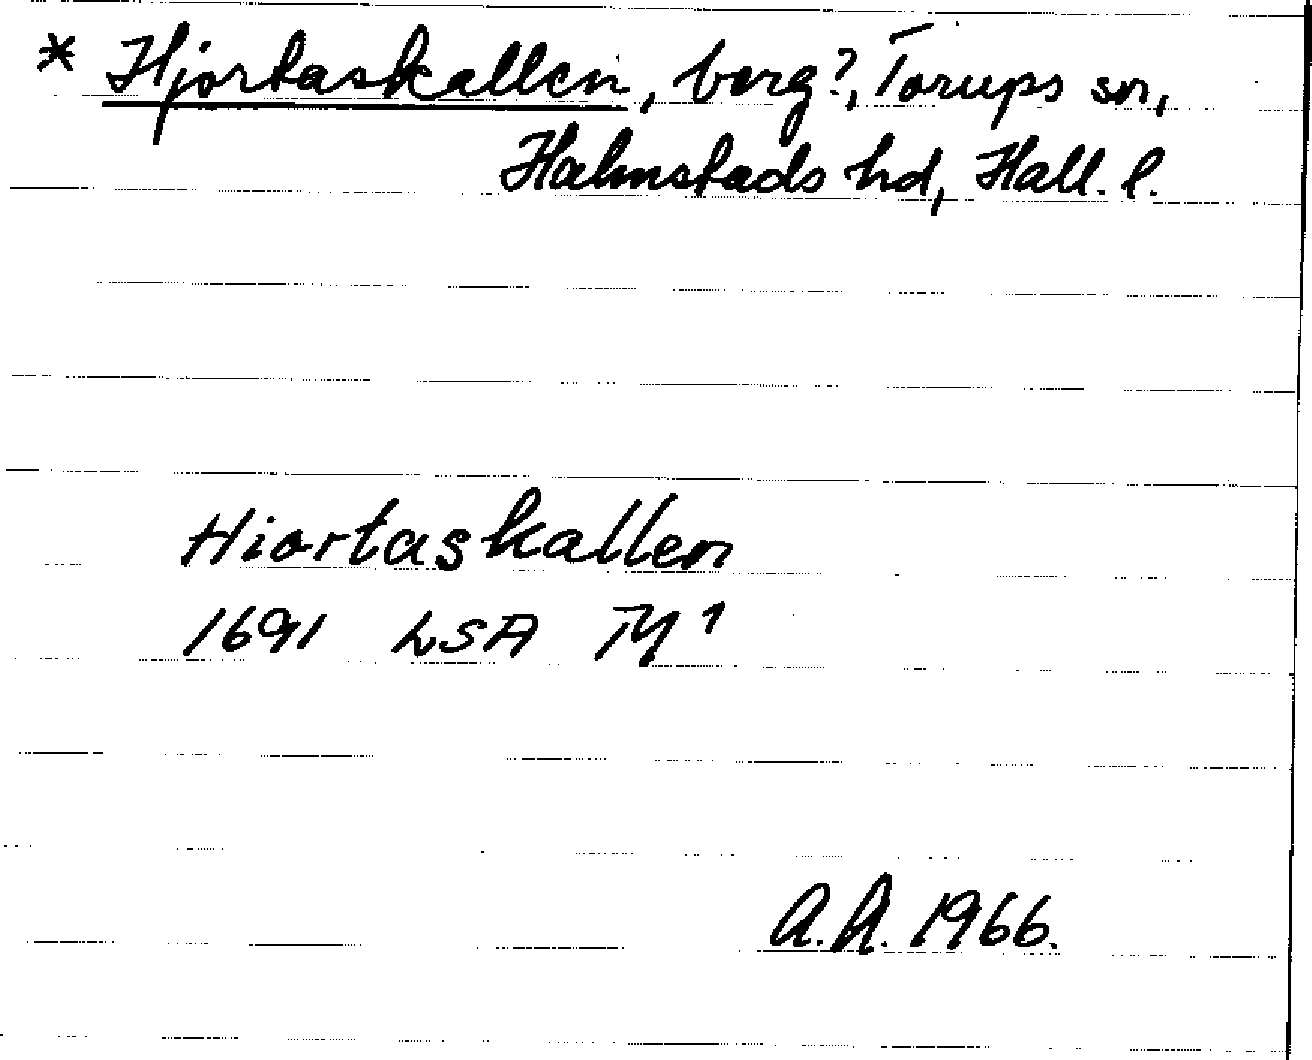 * Hjortaskallen, berg?, Torups sn,
Halmstads hd, Hall. l.
Hiortaskallen
1691 LSA TY¹
A.A. 1966.